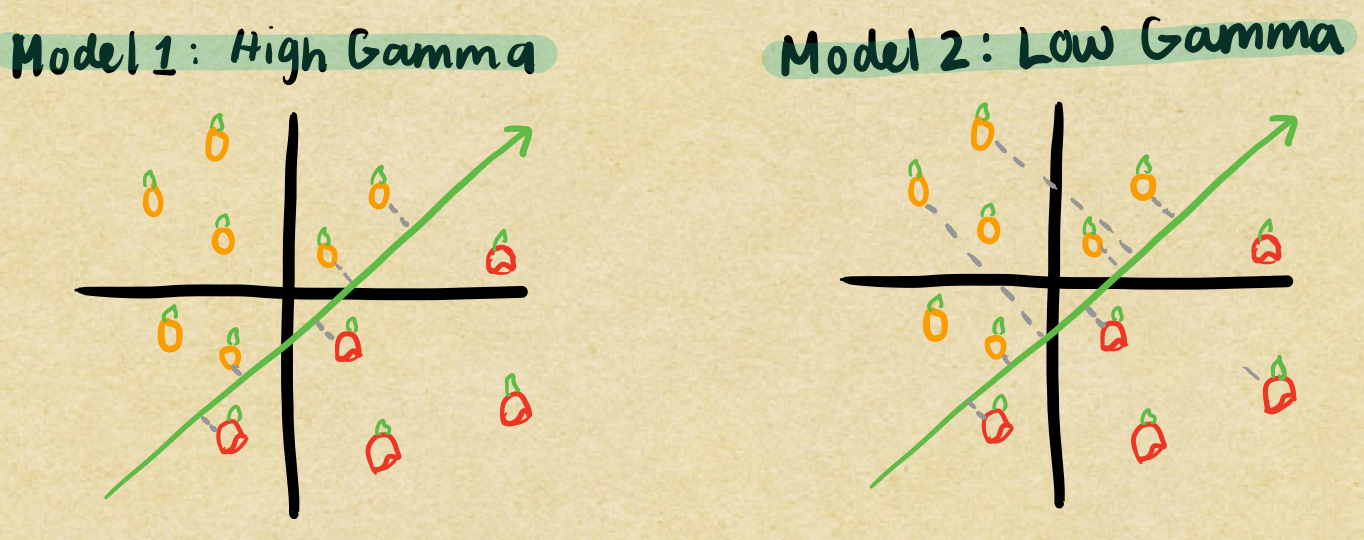 Model 1: High Gamma
Model 2: Low Gamma